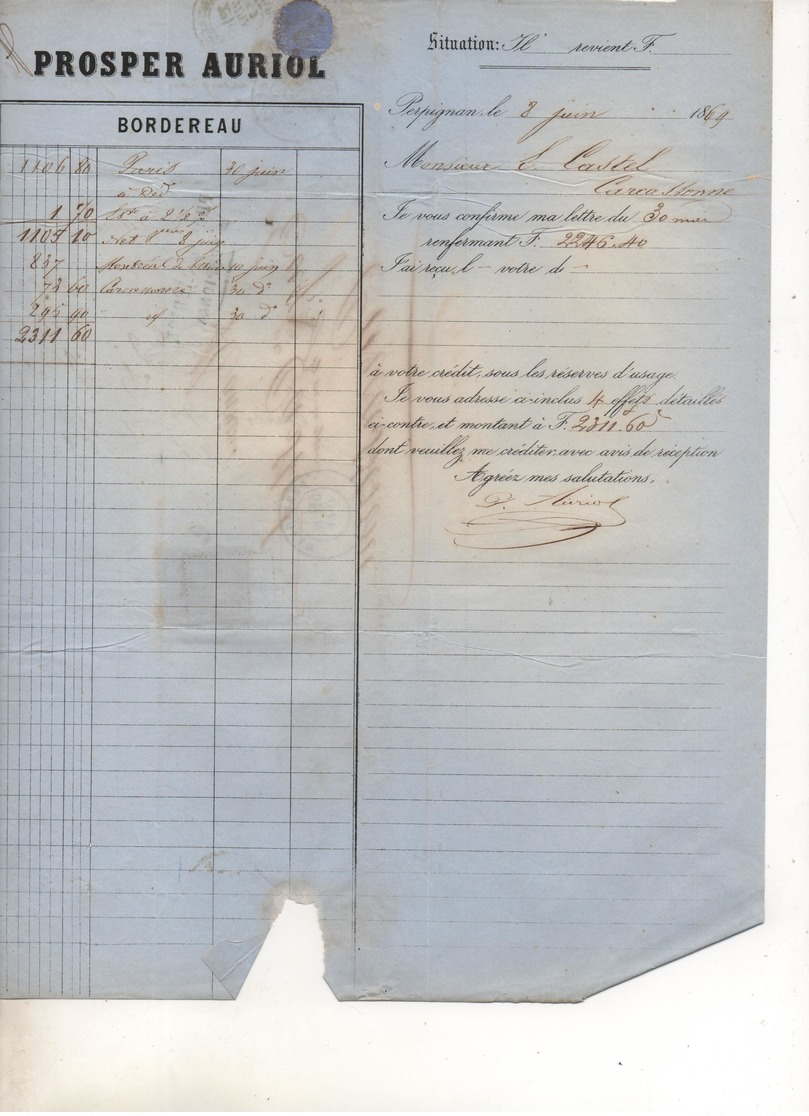 PROSPER AURIOL
BORDEREAU
1106 80 Paris 30 juin
à Déd
1 70
1105 10 Net 8 juin
837 Montréal 10 juin
73 60 Carcassonne 30 d°
295 90 30 d°
2311 60
Situation: Il revient F.
Perpignan, le 8 juin 1869
Monsieur L. Castel
Carcassonne
Je vous confirme ma lettre du 30 mai
renfermant F. 2246.40
J'ai reçu l – votre d –
à votre crédit, sous les réserves d'usage.
Je vous adresse ci-inclus 4 effets détaillés
ci-contre, et montant à F. 2311.60
dont veuillez me créditer, avec avis de réception
Agréez mes salutations,
P. Auriol